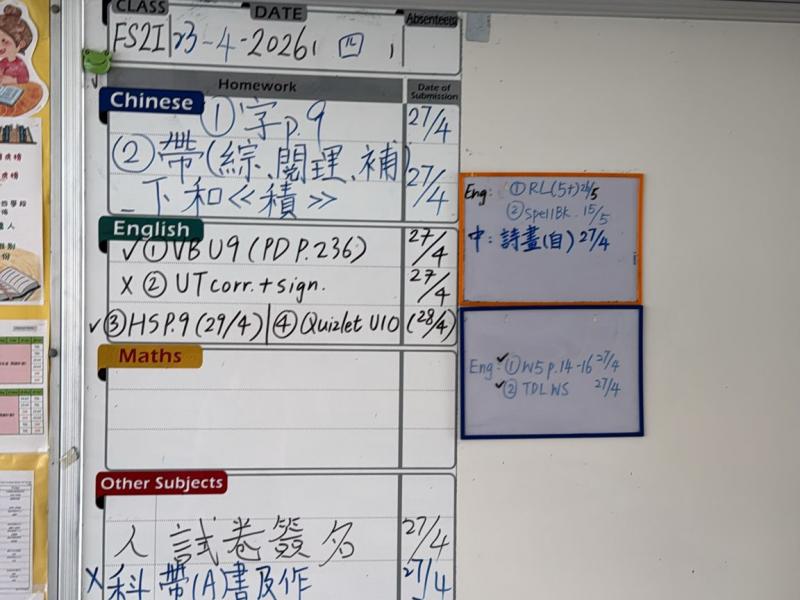 CLASS DATE Absentees
FS2I 23-4-2026 ( 四 )
Homework Date of Submission
Chinese
① 字 p.9 27/4
② 帶(綜、閱理、補) 27/4
_下和≪積≫
English
✓ ① VB U9 (PD P.236) 27/4
x ② UT corr. + sign. 27/4
✓ ③ HS P.9 (29/4) ④ Quizlet U10 (28/4)
Maths
Other Subjects
人 試卷簽名 27/4
X 科 帶(A)書及作 27/4
Eng: ① RL(5+) /5
② SpellBk. 15/5
中: 詩畫(自) 27/4
Eng: ✓ ① W5 p.14-16 27/4
✓ ② TDL WS 27/4